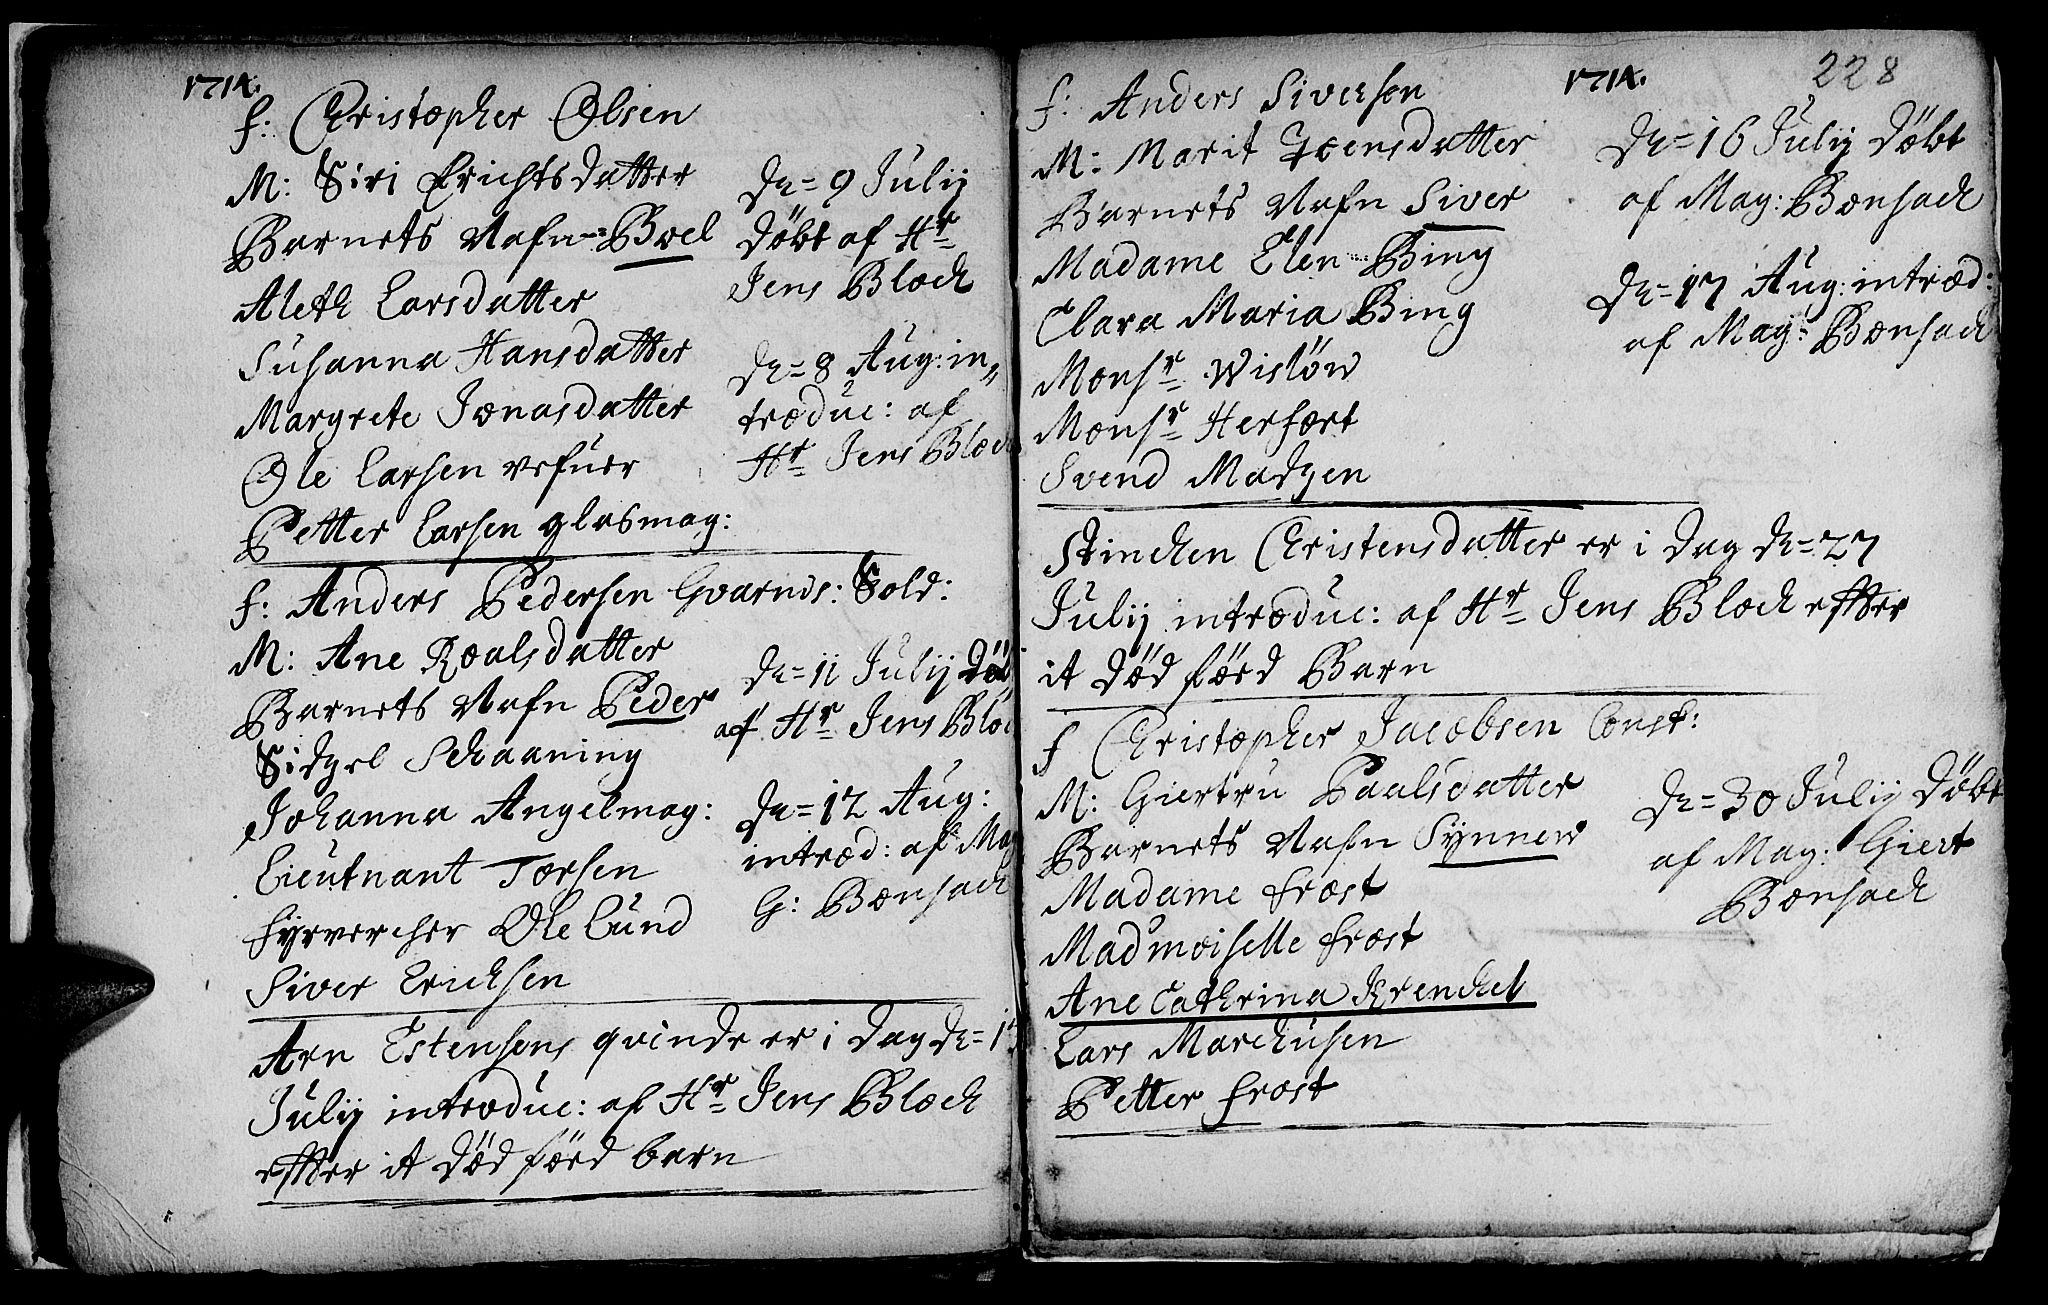 1714.
f: Christopher Olsen
M: Siri Erichsdatter
Barnets Nafn Boel
Aleth Larsdatter
Susanna Hansdatter
Margrete Jonasdatter
Ole Larsen vefuer
Petter Larsen glasmag:
dn= 9 Julij
döbt af Hr
Jens Block
dn= 8 Aug: in„
troduc: af
Hr Jens Block
f: Anders Pedersen Gvarnis: Sold:
M: Ane Roalsdatter
Barnets Nafn Peder
Sidzel Schaaning
Johanna Angelmag:
Lieutnant Torsen
fyrvercher Ole Lund
Siver Erichsen
dn= 11 Julij döb
af Hr Jens Bloc
dn= 12 Aug:
introd: af Mag
G: Bonsach
Arn Estensens qvinde er i dag dn= 13
Julij introduc: af Hr Jens Block
effter it död förd barn
1714.
228
f: Anders Siversen
M: Marit Joensdatter
Barnets Nafn Siver
Madame Elen Bing
Clara Maria Bing
Monsr Wislöw
Monsr Herfort
Svend Madzen
dn= 16 Julij döbt
af Mag: Bonsach
dn= 17 Aug: introd:
af Mag: Bonsach
Stinchen Christensdatter er i dag dn= 27
Julij introduc: af Hr Jens Block effter
it död förd Barn
f Christopher Jacobsen Const:
M: Giertru Paalsdatter
Barnets Nafn Synnew
Madame frost
Madmoiselle frost
Ane Cathrina Krenchel
Lars Marchusen
Petter frost
dn= 30 Julij döbt
af Mag: Giert
Bonsach